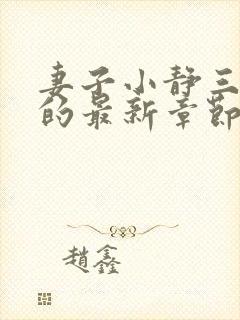 妻子小静三
的最新章節
趙鑫